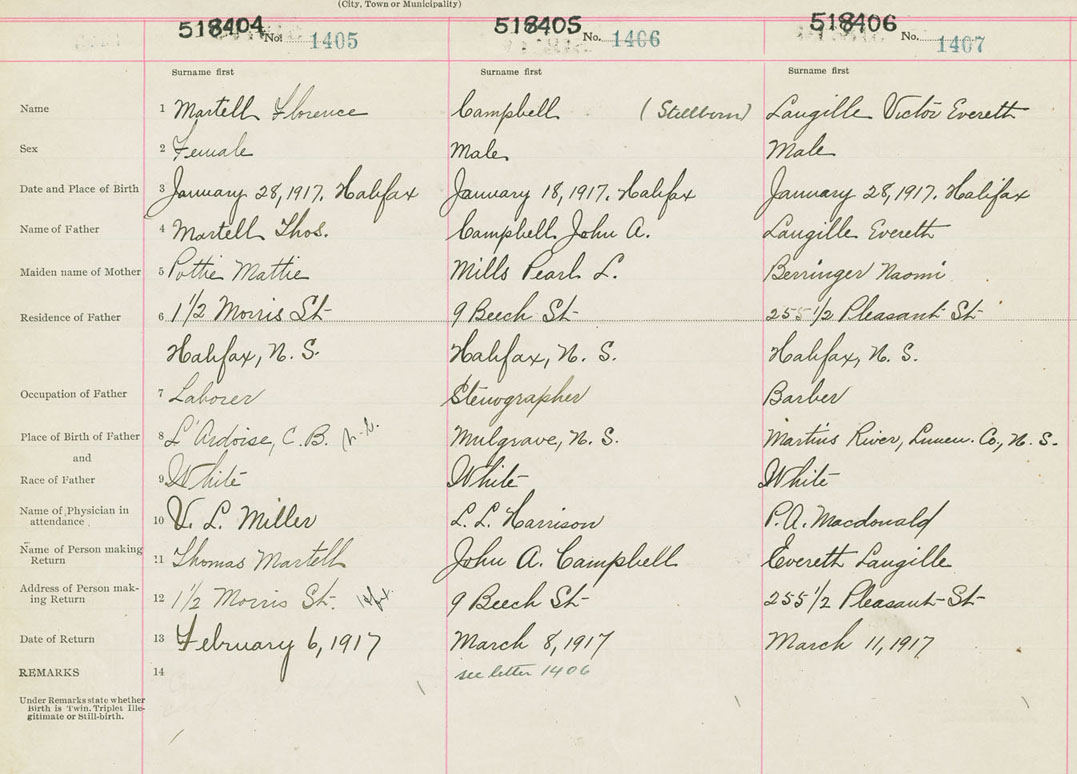 (City, Town or Municipality)
518404 No. 1405 518405 No. 1406 518406 No. 1407
Surname first Surname first Surname first
Name 1 Martell Florence Campbell (Stillborn) Langille Victor Everett
Sex 2 Female Male Male
Date and Place of Birth 3 January 28, 1917. Halifax January 18, 1917. Halifax January 28, 1917. Halifax
Name of Father 4 Martell Thos. Campbell John A. Langille Everett
Maiden name of Mother 5 Pottie Mattie Mills Pearl L. Berringer Naomi
Residence of Father 6 1 1/2 Morris St 9 Beech St 255 1/2 Pleasant St
Halifax, N. S. Halifax, N. S. Halifax, N. S.
Occupation of Father 7 Laborer Stenographer Barber
Place of Birth of Father 8 L'Ardoise, C. B. N.S. Mulgrave, N. S. Martins River, Lunen. Co., N. S.
and
Race of Father 9 White White White
Name of Physician in
attendance 10 V. L. Miller L. L. Harrison P. A. Macdonald
Name of Person making
Return 11 Thomas Martell John A. Campbell Everett Langille
Address of Person mak-
ing Return 12 1 1/2 Morris St. Hfx. 9 Beech St 255 1/2 Pleasant St
Date of Return 13 February 6, 1917 March 8, 1917 March 11, 1917
REMARKS 14 see letter 1406
Under Remarks state whether
Birth is Twin. Triplet Ille-
gitimate or Still-birth.